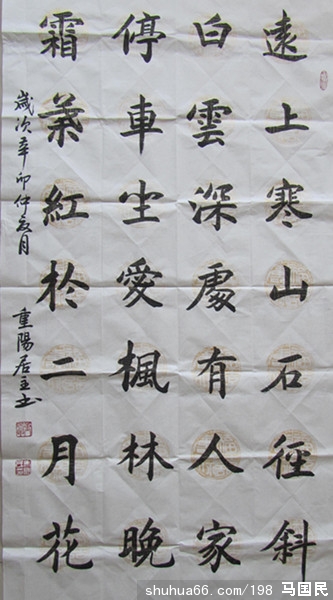 遠上寒山石徑斜
白雲深處有人家
停車坐愛楓林晚
霜葉紅於二月花
歲次辛卯仲夏月
重陽居主书
shuhua66.com/198 马国民